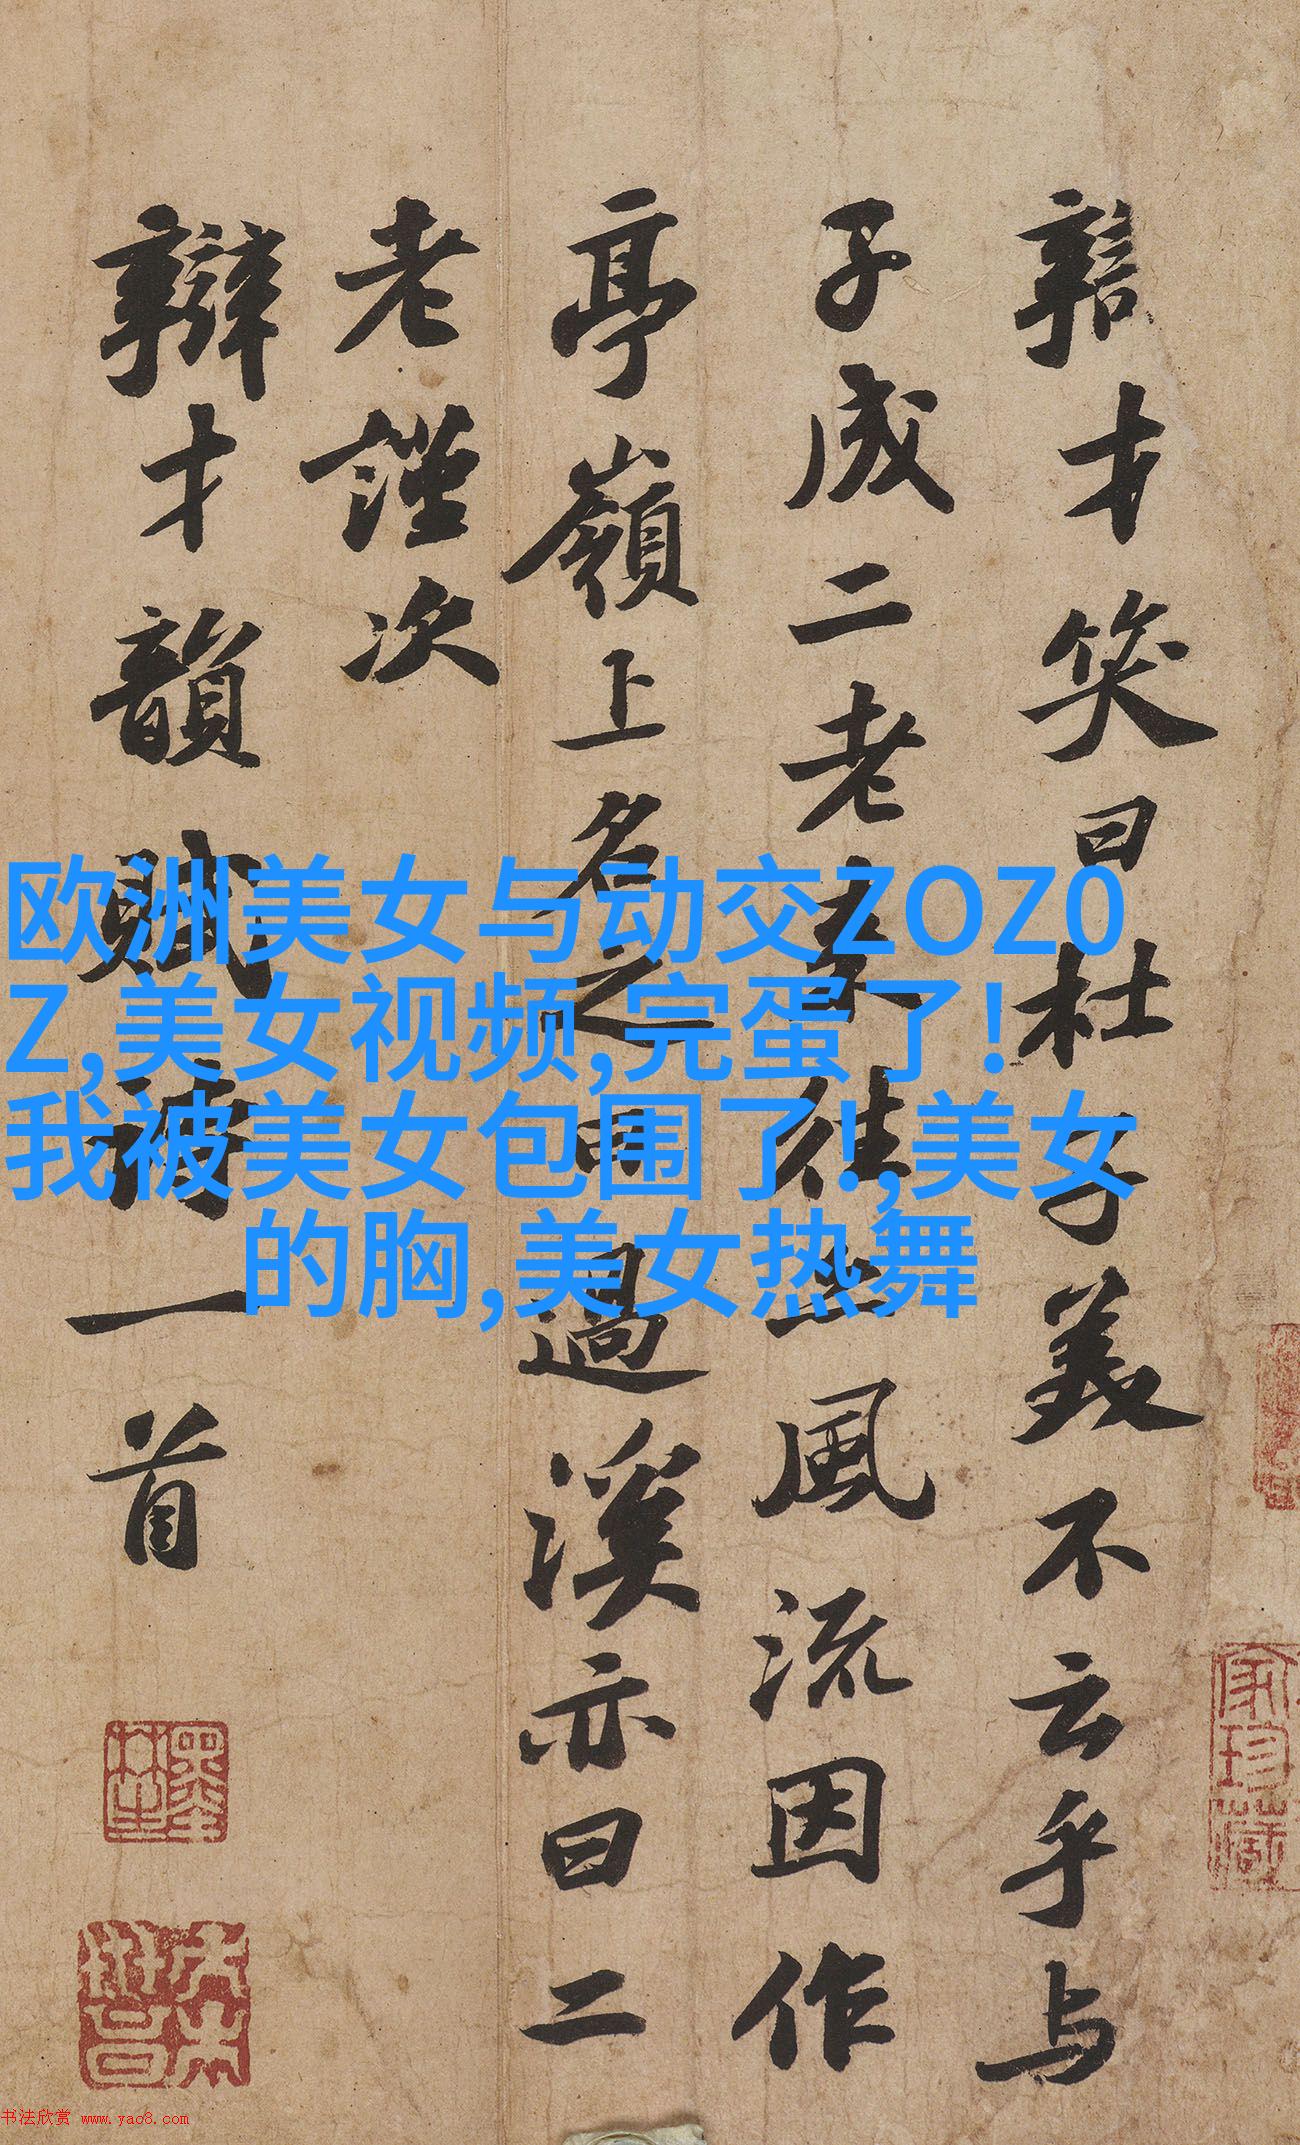 辯才笑曰杜子美不云乎与
子成二老来往亦風流因作
亭嶺上名之曰過溪亦曰二
老謹次
辯才韻賦詩一首
欧洲美女与动交ZOZ0
Z,美女视频,完蛋了!
我被美女包围了!,美女
的胸,美女热舞
家珍藏
书法欣赏 www.yac8.com